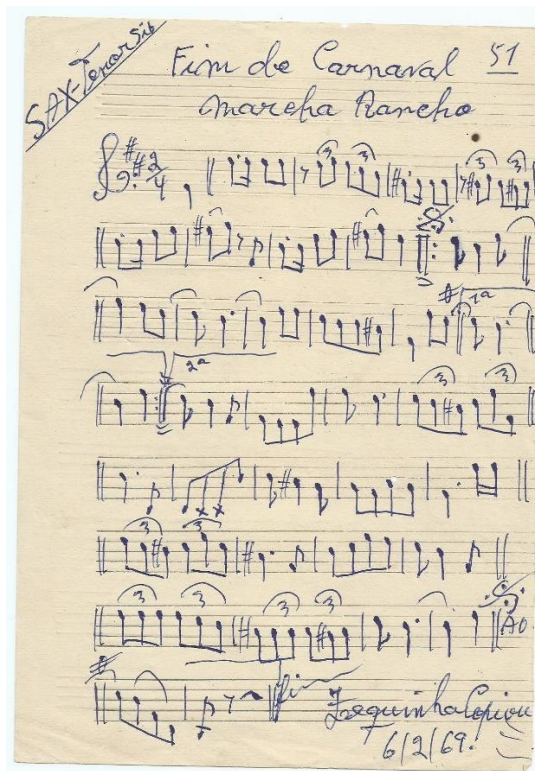 SAX-Tenor Sib
Fim de Carnaval 51
Marcha Rancho
2/4
3 3 3 3
1ª
2ª
3 3
3 3
3 3 3 3
AO
Fim
Zequinha Copiou
6/2/69.